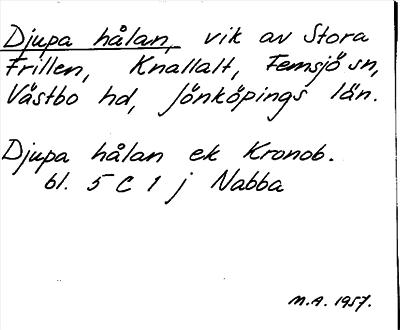 Djupa hålan, vik av Stora
Frillen, Knallalt, Femsjö sn,
Västbo hd, Jönköpings län.
Djupa hålan ek Kronob.
bl. 5 C 1 j Nabba
M.A. 1957.